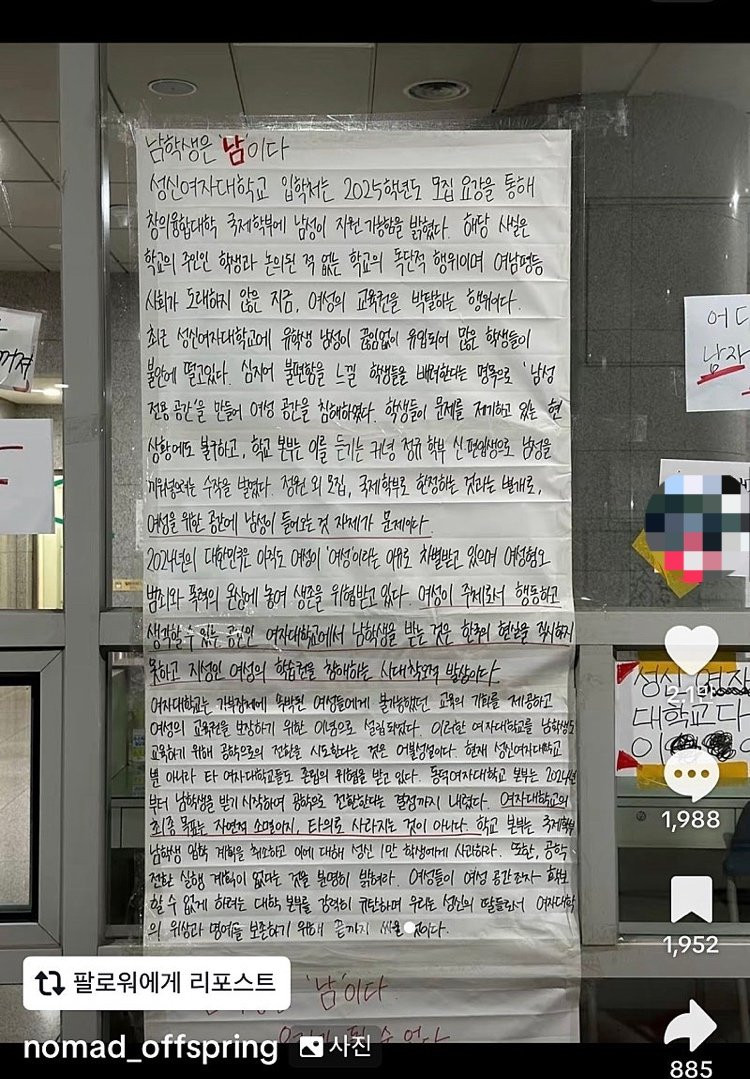 남학생은 '남'이다
성신여자대학교 입학처는 2025학년도 모집 요강을 통해
창의융합대학 국제학부에 남성이 지원 가능함을 밝혔다. 해당 사실은
학교의 주인인 학생과 논의된 적 없는 학교의 독단적 행위이며 여남평등
사회가 도래하지 않은 지금, 여성의 교육권을 박탈하는 행위이다.
최근 성신여자대학교에 유학생 남성이 끊임없이 유입되어 많은 학생들이
불안에 떨고있다. 심지어 불편함을 느낄 학생들을 배려한다는 명목으로 '남성
전용 공간'을 만들어 여성 공간을 침해하였다. 학생들이 문제를 제기하고 있는 현
상황에도 불구하고, 학교 본부는 이를 듣기는 커녕 정규 학부 신·편입생으로 남성을
끼워넣으려는 수작을 벌였다. 정원 외 모집, 국제학부로 한정하는 것과는 별개로,
여성을 위한 공간에 남성이 들어오는 것 자체가 문제이다.
2024년의 대한민국은 아직도 여성이 '여성'이라는 이유로 차별받고 있으며 여성혐오
범죄와 폭력의 온상에 놓여 생존을 위협받고 있다. 여성이 주체로서 행동하고
생각할 수 있는 공간인 여자대학교에서 남학생을 받는 것은 한국의 현실을 직시하지
못하고 지성인 여성의 학습권을 침해하는 시대착오적 발상이다.
여자대학교는 가부장제에 속박된 여성들에게 불가능했던 교육의 기회를 제공하고
여성의 교육권을 보장하기 위한 이념으로 설립되었다. 이러한 여자대학교를 남학생도
교육하기 위해 공학으로의 전환을 시도한다는 것은 어불성설이다. 현재 성신여자대학교
뿐 아니라 타 여자대학교들도 존립의 위협을 받고 있다. 동덕여자대학교 본부는 2024년
부터 남학생을 받기 시작하여 공학으로 전환한다는 결정까지 내렸다. 여자대학교의
최종 목표는 자연적 소멸이지, 타의로 사라지는 것이 아니다. 학교 본부는 국제학부
남학생 입학 계획을 취소하고 이에 대해 성신 1만 학생에게 사과하라. 또한, 공학
전환 실행 계획이 없다는 것을 분명히 밝혀라. 여성들이 여성 공간조차 확보
할 수 없게 하려는 대학 본부를 강력히 규탄하며 우리는 성신의 딸들로서 여자대학
의 위상과 명예를 보존하기 위해 끝까지 싸울 것이다.
'남'이다.
꺼져
어디
남자
성신 여자
대학교다
이
2.1만
1,988
1,952
885
팔로워에게 리포스트
nomad_offspring
사진